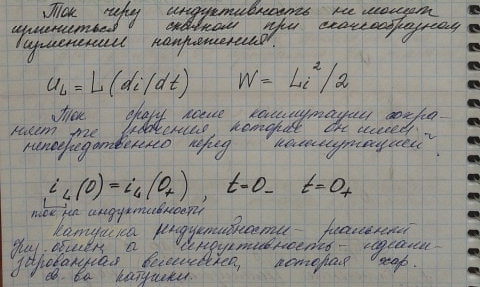 Ток через индуктивность не может
измениться скачком при скачкообразном
изменении напряжения.
u_L = L(di/dt) W = Li²/2
Ток сразу после коммутации сохра-
няет те значения которое он имел
непосредственно перед коммутацией
i_L(0) = i_L(0₊), t=0₋ t=0₊
ток на индуктивности
Катушка индуктивности - реальный
физ. а индуктивность - идеали-
зированная величина, которая хар.
св-ва катушки.